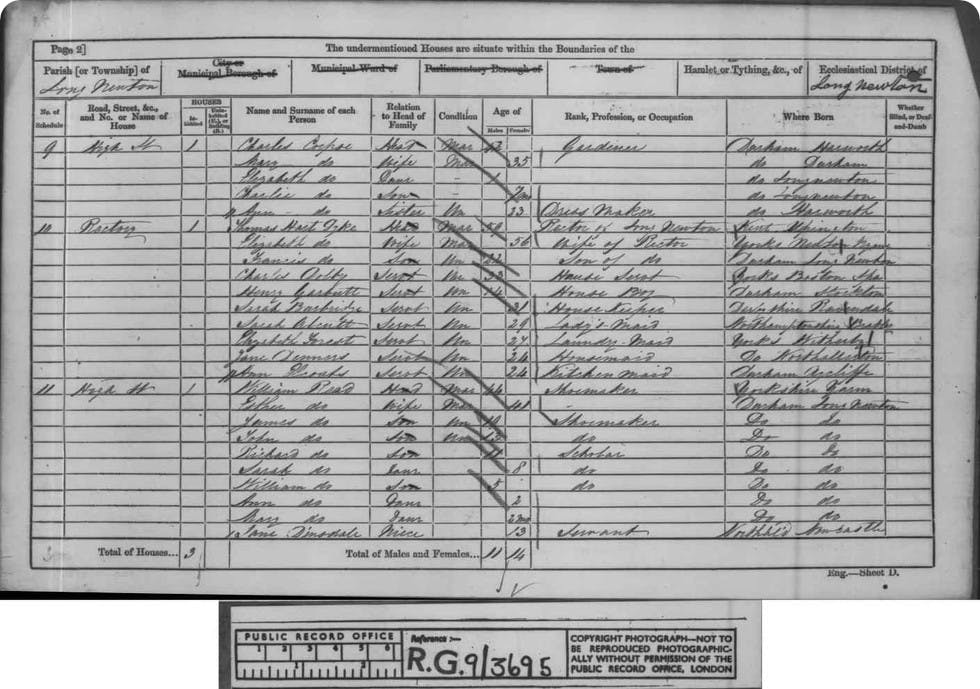 Page 2]
The undermentioned Houses are situate within the Boundaries of the
Parish [or Township] of
Long Newton
City or
Municipal Borough of
Municipal Ward of
Parliamentary Borough of
Town of
Hamlet or Tything, &c., of
Ecclesiastical District of
Long Newton
No. of Schedule
Road, Street, &c., and No. or Name of House
HOUSES
Inhabited
Uninhabited (U.), or Building (B.)
Name and Surname of each Person
Relation to Head of Family
Condition
Age of
Males
Females
Rank, Profession, or Occupation
Where Born
Whether Blind, or Deaf-and-Dumb
9 High St 1 Charles Head Mar Gardiner Durham
Mary do Wife Mar 35 do Durham
Elizabeth do Daur - 1 do Longnewton
Charlie do Son do Longnewton
Ann do Sister Un 23 Dress Maker do
10 Rectory 1 Thomas Hart Dyke Head Mar Rector of Long Newton Kent
Elizabeth do Wife Mar 56 Wife of Rector Yorks
Francis do Son Un Son of do Durham Long Newton
Charles Servt Un House Servt Yorks Boston Spa
Henry Garbutt Servt Un 14 House Boy Durham Stockton
Sarah Servt Un 31 House Keeper
Sarah Servt Un 29 Lady's Maid Northamptonshire
Elizabeth Servt Un 27 Laundry Maid Yorks
Jane Servt Un 24 Housemaid Do Northallerton
Ann Servt Un 24 Kitchen Maid Durham
11 High St 1 William Read Head Mar 44 Shoemaker Yorkshire Yarm
Esther do Wife Mar 41 - Durham Long Newton
James do Son Un 19 Shoemaker Do do
John do Son Un do Do do
Richard do Son 11 Scholar Do do
Sarah do Daur 8 do Do do
William do Son 5 do Do do
Ann do Daur 2 Do do
Mary do Daur 2 mo Do do
Jane Dinsdale Niece 13 Servant Newcastle
Total of Houses... 3
Total of Males and Females... 11 14
Eng.—Sheet D.
PUBLIC RECORD OFFICE
1 2 3 4 5 6
1 2
Reference :—
R.G. 9/3695
COPYRIGHT PHOTOGRAPH—NOT TO
BE REPRODUCED PHOTOGRAPHIC-
ALLY WITHOUT PERMISSION OF THE
PUBLIC RECORD OFFICE, LONDON